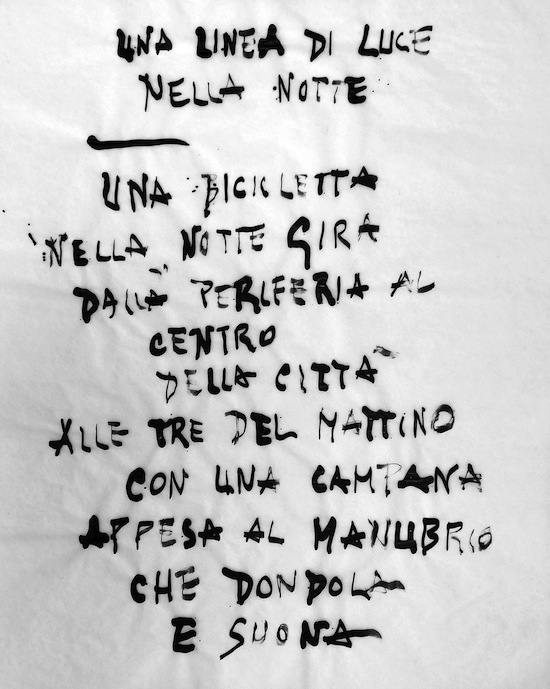 UNA LINEA DI LUCE
NELLA NOTTE
UNA BICICLETTA
NELLA NOTTE GIRA
DALLA PERIFERIA AL
CENTRO
DELLA CITTÀ
ALLE TRE DEL MATTINO
CON UNA CAMPANA
APPESA AL MANUBRIO
CHE DONDOLA
E SUONA